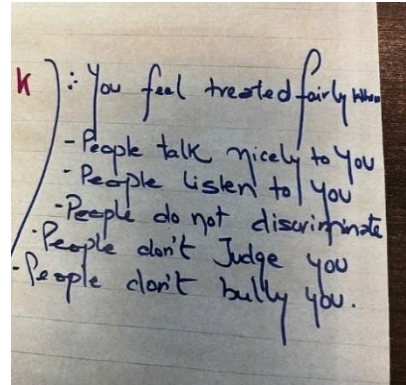 K) : You feel treated fairly when
- People talk nicely to you
- People listen to you
- People do not discriminate
- People don't Judge you
- People don't bully you.